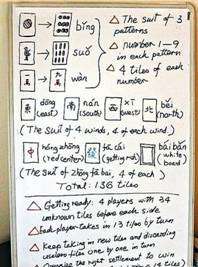 bǐng
△ The suit of 3 patterns
suǒ
△ number 1-9 in each pattern
一萬 → 九萬 wàn
△ 4 tiles of each number
東 dōng (east) 南 nán (south) 西 xī (west) 北 běi (north)
(The suit of 4 winds, 4 of each wind.)
中 hóng zhōng (red center) 發 fā cái (getting rich) bái bǎn (white board)
(The suit of zhōng fā bái, 4 of each)
Total: 136 tiles
△ Getting ready: 4 players with 34
unknown tiles before each side
△ Each player takes in 13 tiles by turn
△ Keep taking in new tiles and discarding
useless tiles one by one in turn
the right settlement to win